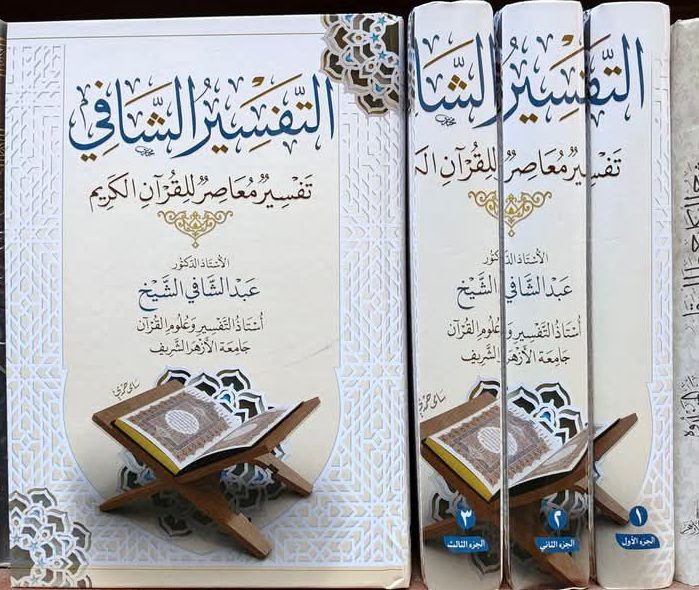 التَّفْسِيرُ الشَّافِي
تَفْسِيرٌ مُعَاصِرٌ لِلْقُرْآنِ الْكَرِيمِ
الأُسْتَاذُ الدُّكْتُور
عَبْدُ الشَّافِي الشَّيْخ
أُسْتَاذُ التَّفْسِيرِ وَعُلُومِ القُرْآن
جَامِعَة الأَزْهَرِ الشَّرِيف
التَّفْسِيرُ الشَّا
تَفْسِيرٌ مُعَاصِرٌ لِلْقُرْآنِ الْكَ
الأُسْتَاذُ الدُّكْتُور
عَبْدُ الشَّافِي الشَّيْخ
أُسْتَاذُ التَّفْسِيرِ وَعُلُومِ القُرْآن
جَامِعَة الأَزْهَرِ الشَّرِيف
١
الجزء الأول
٢
الجزء الثاني
٣
الجزء الثالث